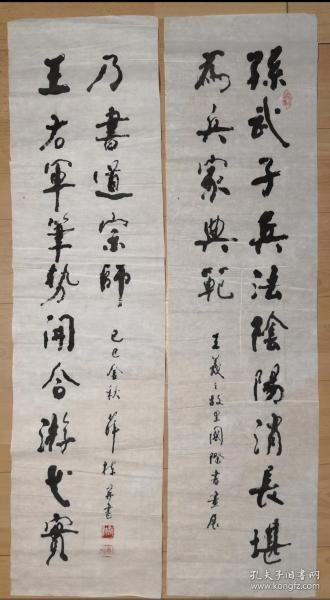 孫武子兵法陰陽消長堪
為兵家典範
王羲之故里國際書畫展
王右軍筆势開合游弋實
乃書道宗師
己巳金秋 薛 并書
孔夫子旧书网